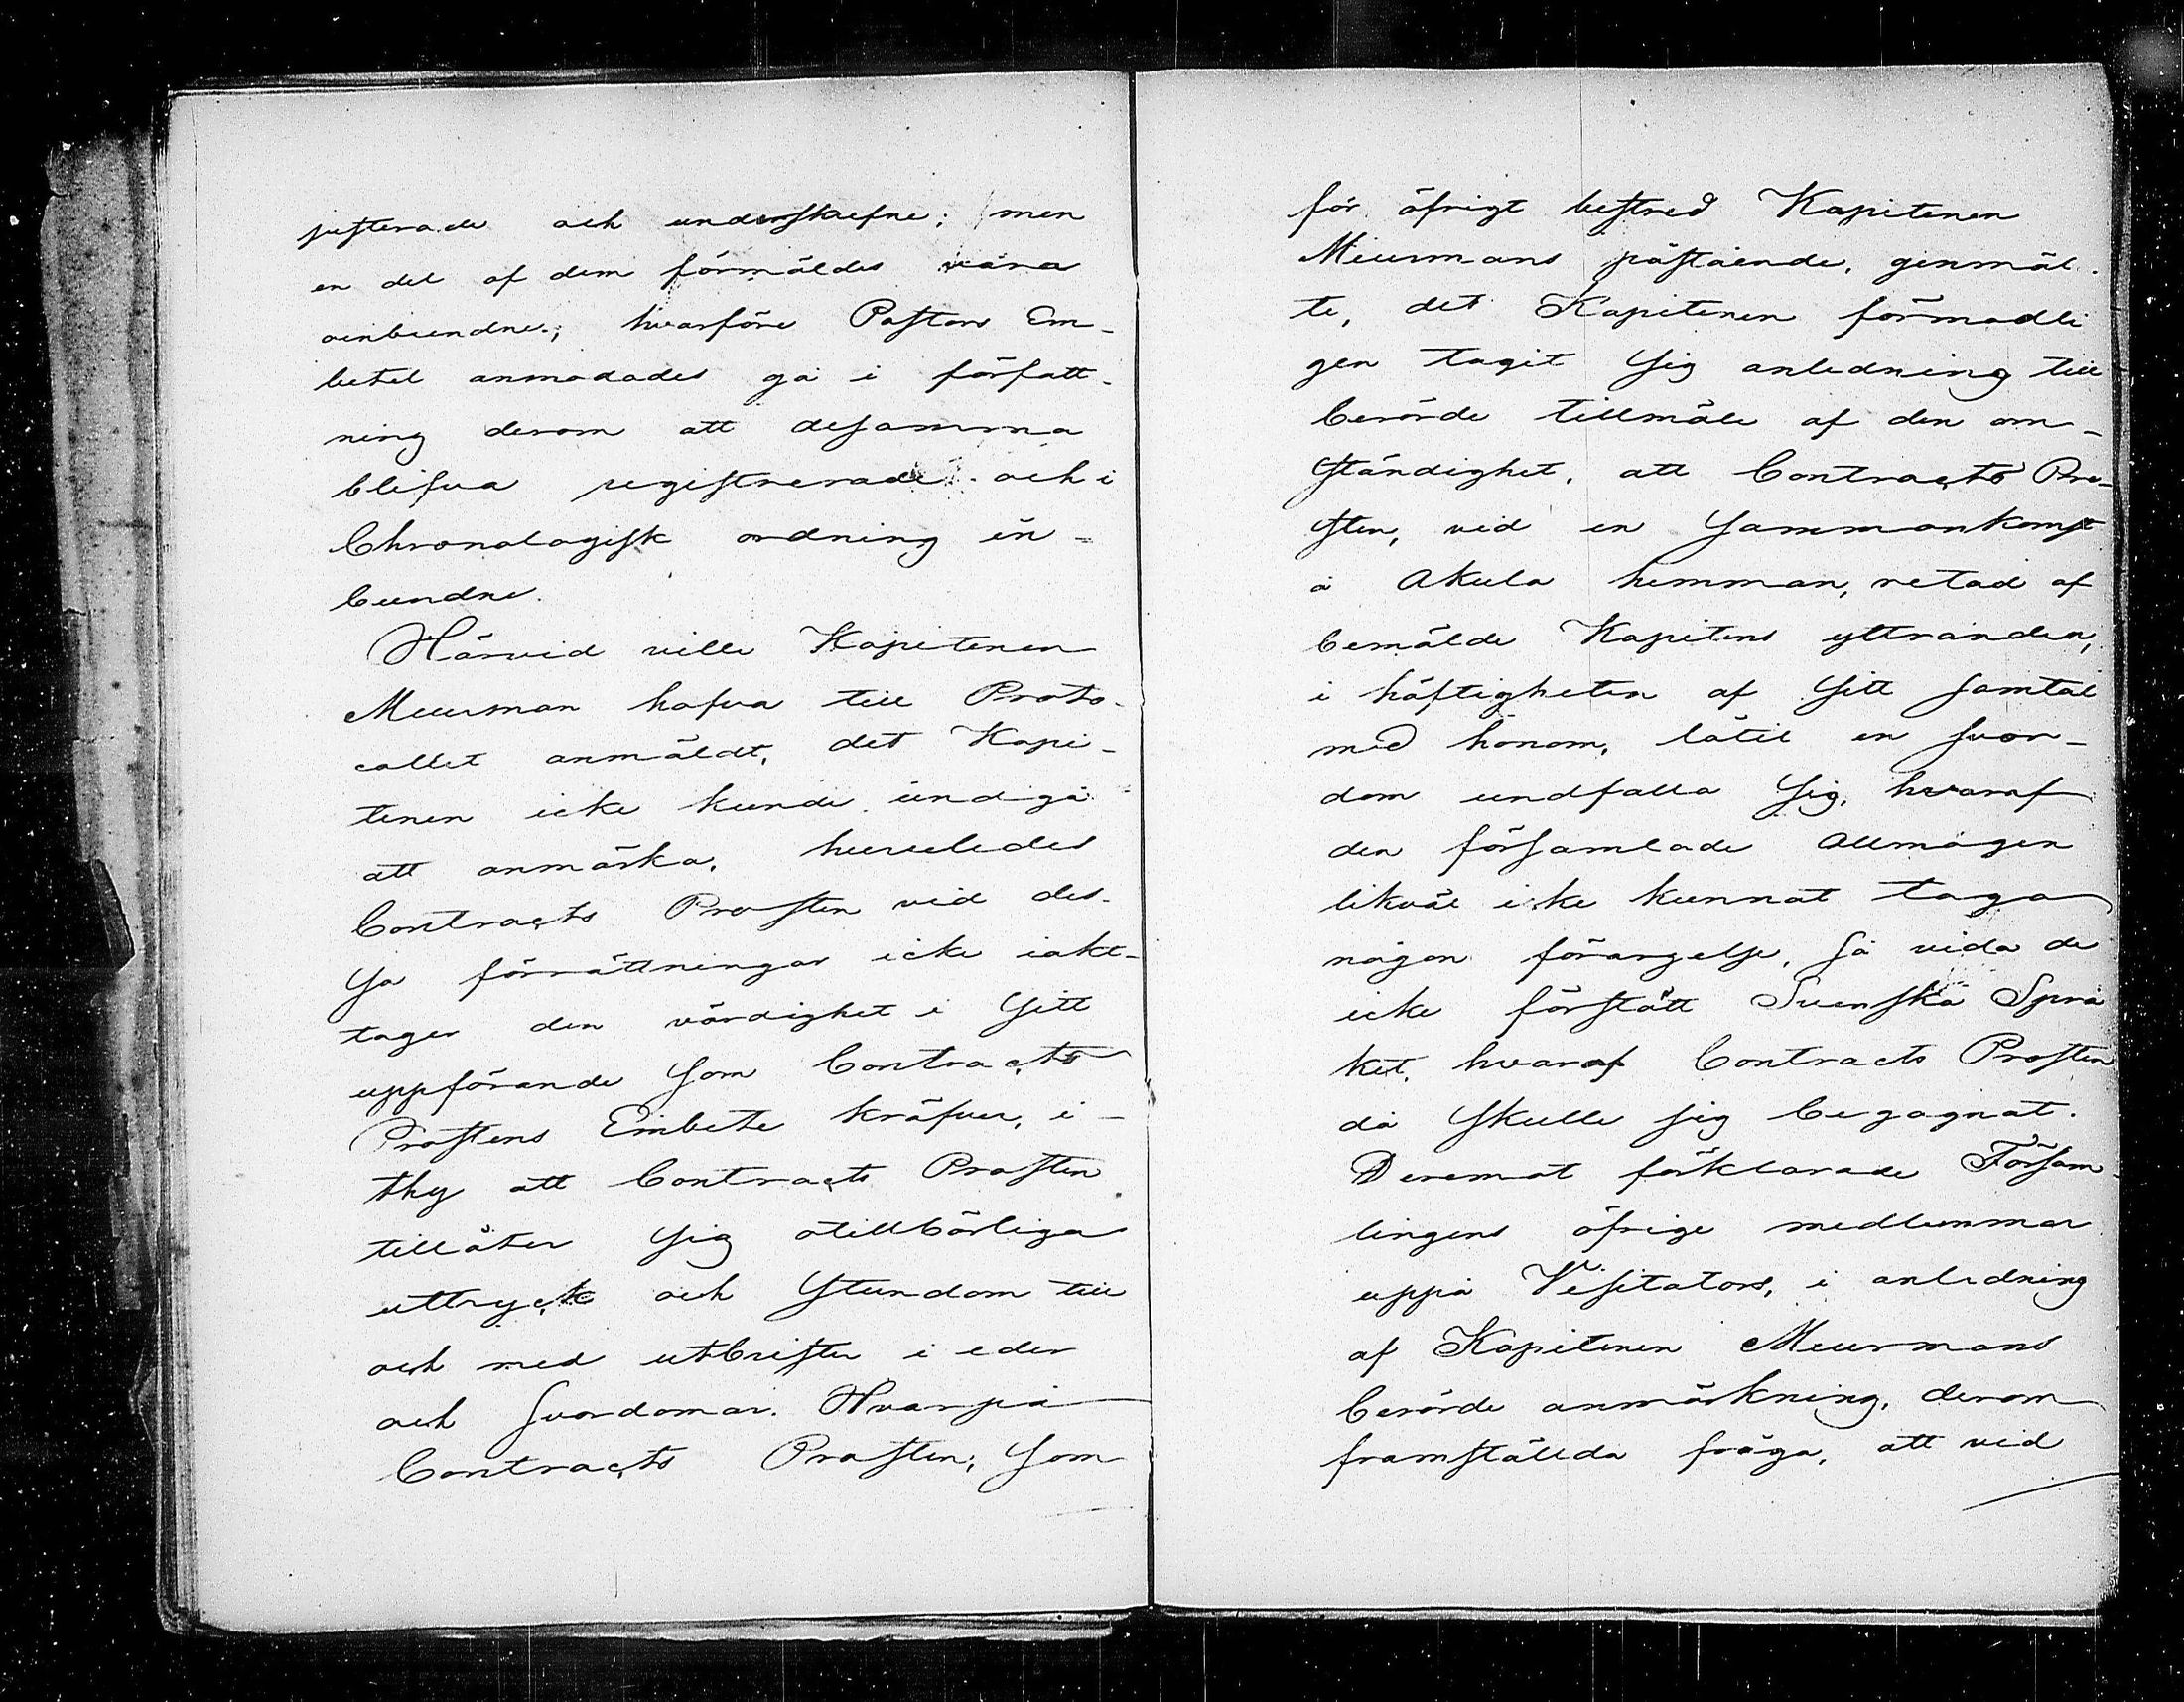 justerade och underskrefne; men
en del af dem förmäldes vara
oinbundne; hvarföre Pastors Em-
betet anmodades gå i författ-
ning derom att desamma
blifva registrerade och i
Chronologisk ordning in-
bundne.
Härvid ville Kapitenen
Meurman hafva till Proto-
collet anmäldt, det Kapi-
tenen icke kunde undgå
att anmärka, huruledes
Contracts Prosten vid des-
sa förrättningar icke iakt-
tager den värdighet i sitt
uppförande som Contracts
Prostens Embete kräfver, i-
thy att Contracts Prosten
tillåter sig otillbörliga
uttryck och stundom till
och med utbrister i eder
och svordomar. Hvarpå
Contracts Prosten, som
för öfrigt bestred Kapitenen
Meurmans påstående, genmäl-
te, det Kapitenen förmodli
gen tagit sig anledning till
berörde tillmäle af den om-
ständighet, att Contracts Pro-
sten, vid en sammankomst
å Akula hemman, retad af
bemälde Kapitens yttranden,
i häftigheten af sitt samtal
med honom, låtit en svor-
dom undfalla sig, hvaraf
den församlade Allmogen
likväl icke kunnat taga
någon förargelse, så vida de
icke förstått Svenska Språ
ket, hvaraf Contracts Prosten
då skulle sig begagnat.
Deremot förklarade Försam-
lingens öfrige medlemmar
uppå Visitators, i anledning
af Kapitenen Meurmans
berörde anmärkning, derom
framställda fråga, att vid